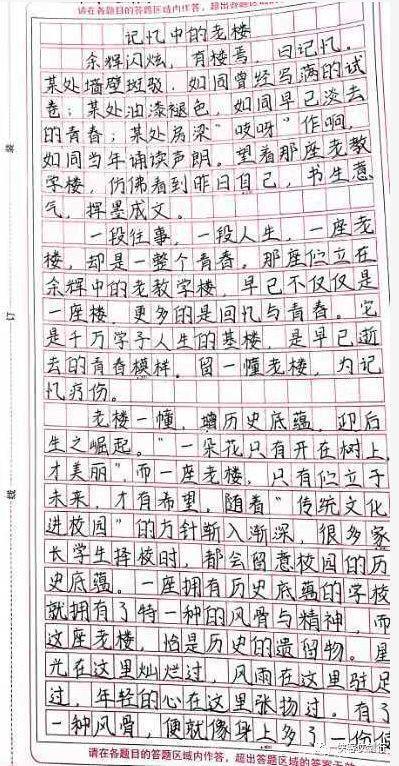 请在各题目的答题区域内作答，超出
记忆中的老楼
余辉闪烁，有楼焉，曰记忆。
某处墙壁斑驳，如同曾经写满的试
卷；某处油漆褪色，如同早已淡去
的青春；某处房梁“吱呀”作响，
如同当年诵读声朗。望着那座老教
学楼，仿佛看到昨日自己，书生意
气，挥墨成文。
一段往事，一段人生，一座老
楼，却是一整个青春。那座伫立在
余辉中的老教学楼，早已不仅仅是
一座楼，更多的是回忆与青春。它
是千万学子人生的基楼，是早已逝
去的青春模样。留一幢老楼，为记
忆疗伤。
老楼一幢，增历史底蕴，迎后
生之崛起。“一朵花只有开在树上
才美丽”，而一座老楼，只有伫立于
未来，才有希望。随着“传统文化
进校园”的方针渐入渐深，很多家
长学生择校时，都会留意校园的历
史底蕴。一座拥有历史底蕴的学校
就拥有了特一种的风骨与精神，而
这座老楼，恰是历史的遗留物。星
光在这里灿烂过，风雨在这里驻足
过，年轻的心在这里张扬过。有了
一种风骨，便就像身上多了一份
请在各题目的答题区域内作答，超出答题区域的答案无效
装
订
线